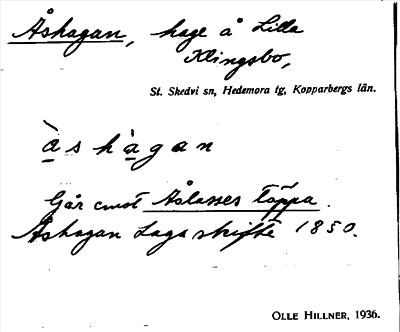 Åshagan, hage å Lilla
Klingsbo,
St. Skedvi sn, Hedemora tg, Kopparbergs län.
àshàgan
Går emot Åslasses täppa.
Åshagan Laga skifte 1850.
OLLE HILLNER, 1936.